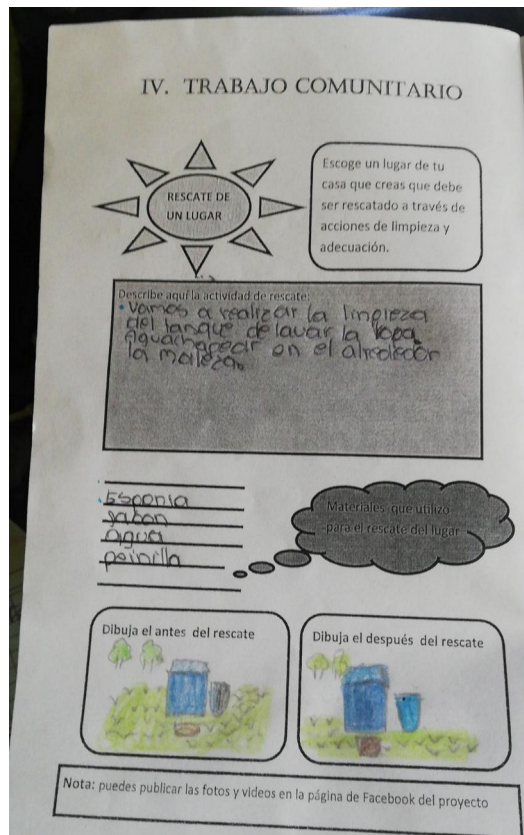 IV. TRABAJO COMUNITARIO
RESCATE DE
UN LUGAR
Escoge un lugar de tu
casa que creas que debe
ser rescatado a través de
acciones de limpieza y
adecuación.
Describe aquí la actividad de rescate:
Vamos a realizar la limpieza
del tanque de lavar la ropa
Aguachapear en el alrededor
la maleza.
Esponja
jabon
agua
peinilla
Materiales que utilizó
para el rescate del lugar
Dibuja el antes del rescate
Dibuja el después del rescate
Nota: puedes publicar las fotos y videos en la página de Facebook del proyecto